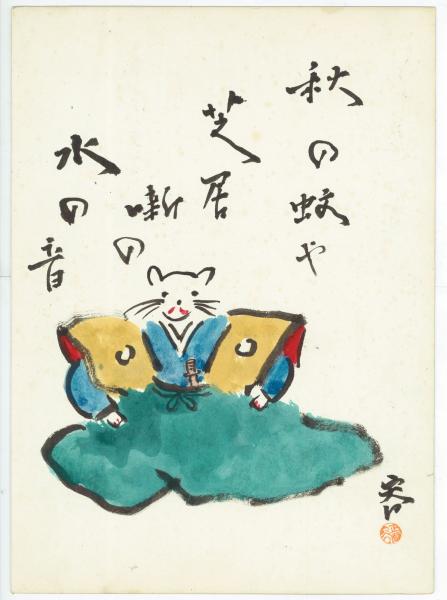 秋の蚊や
芝居
噺の
水の音